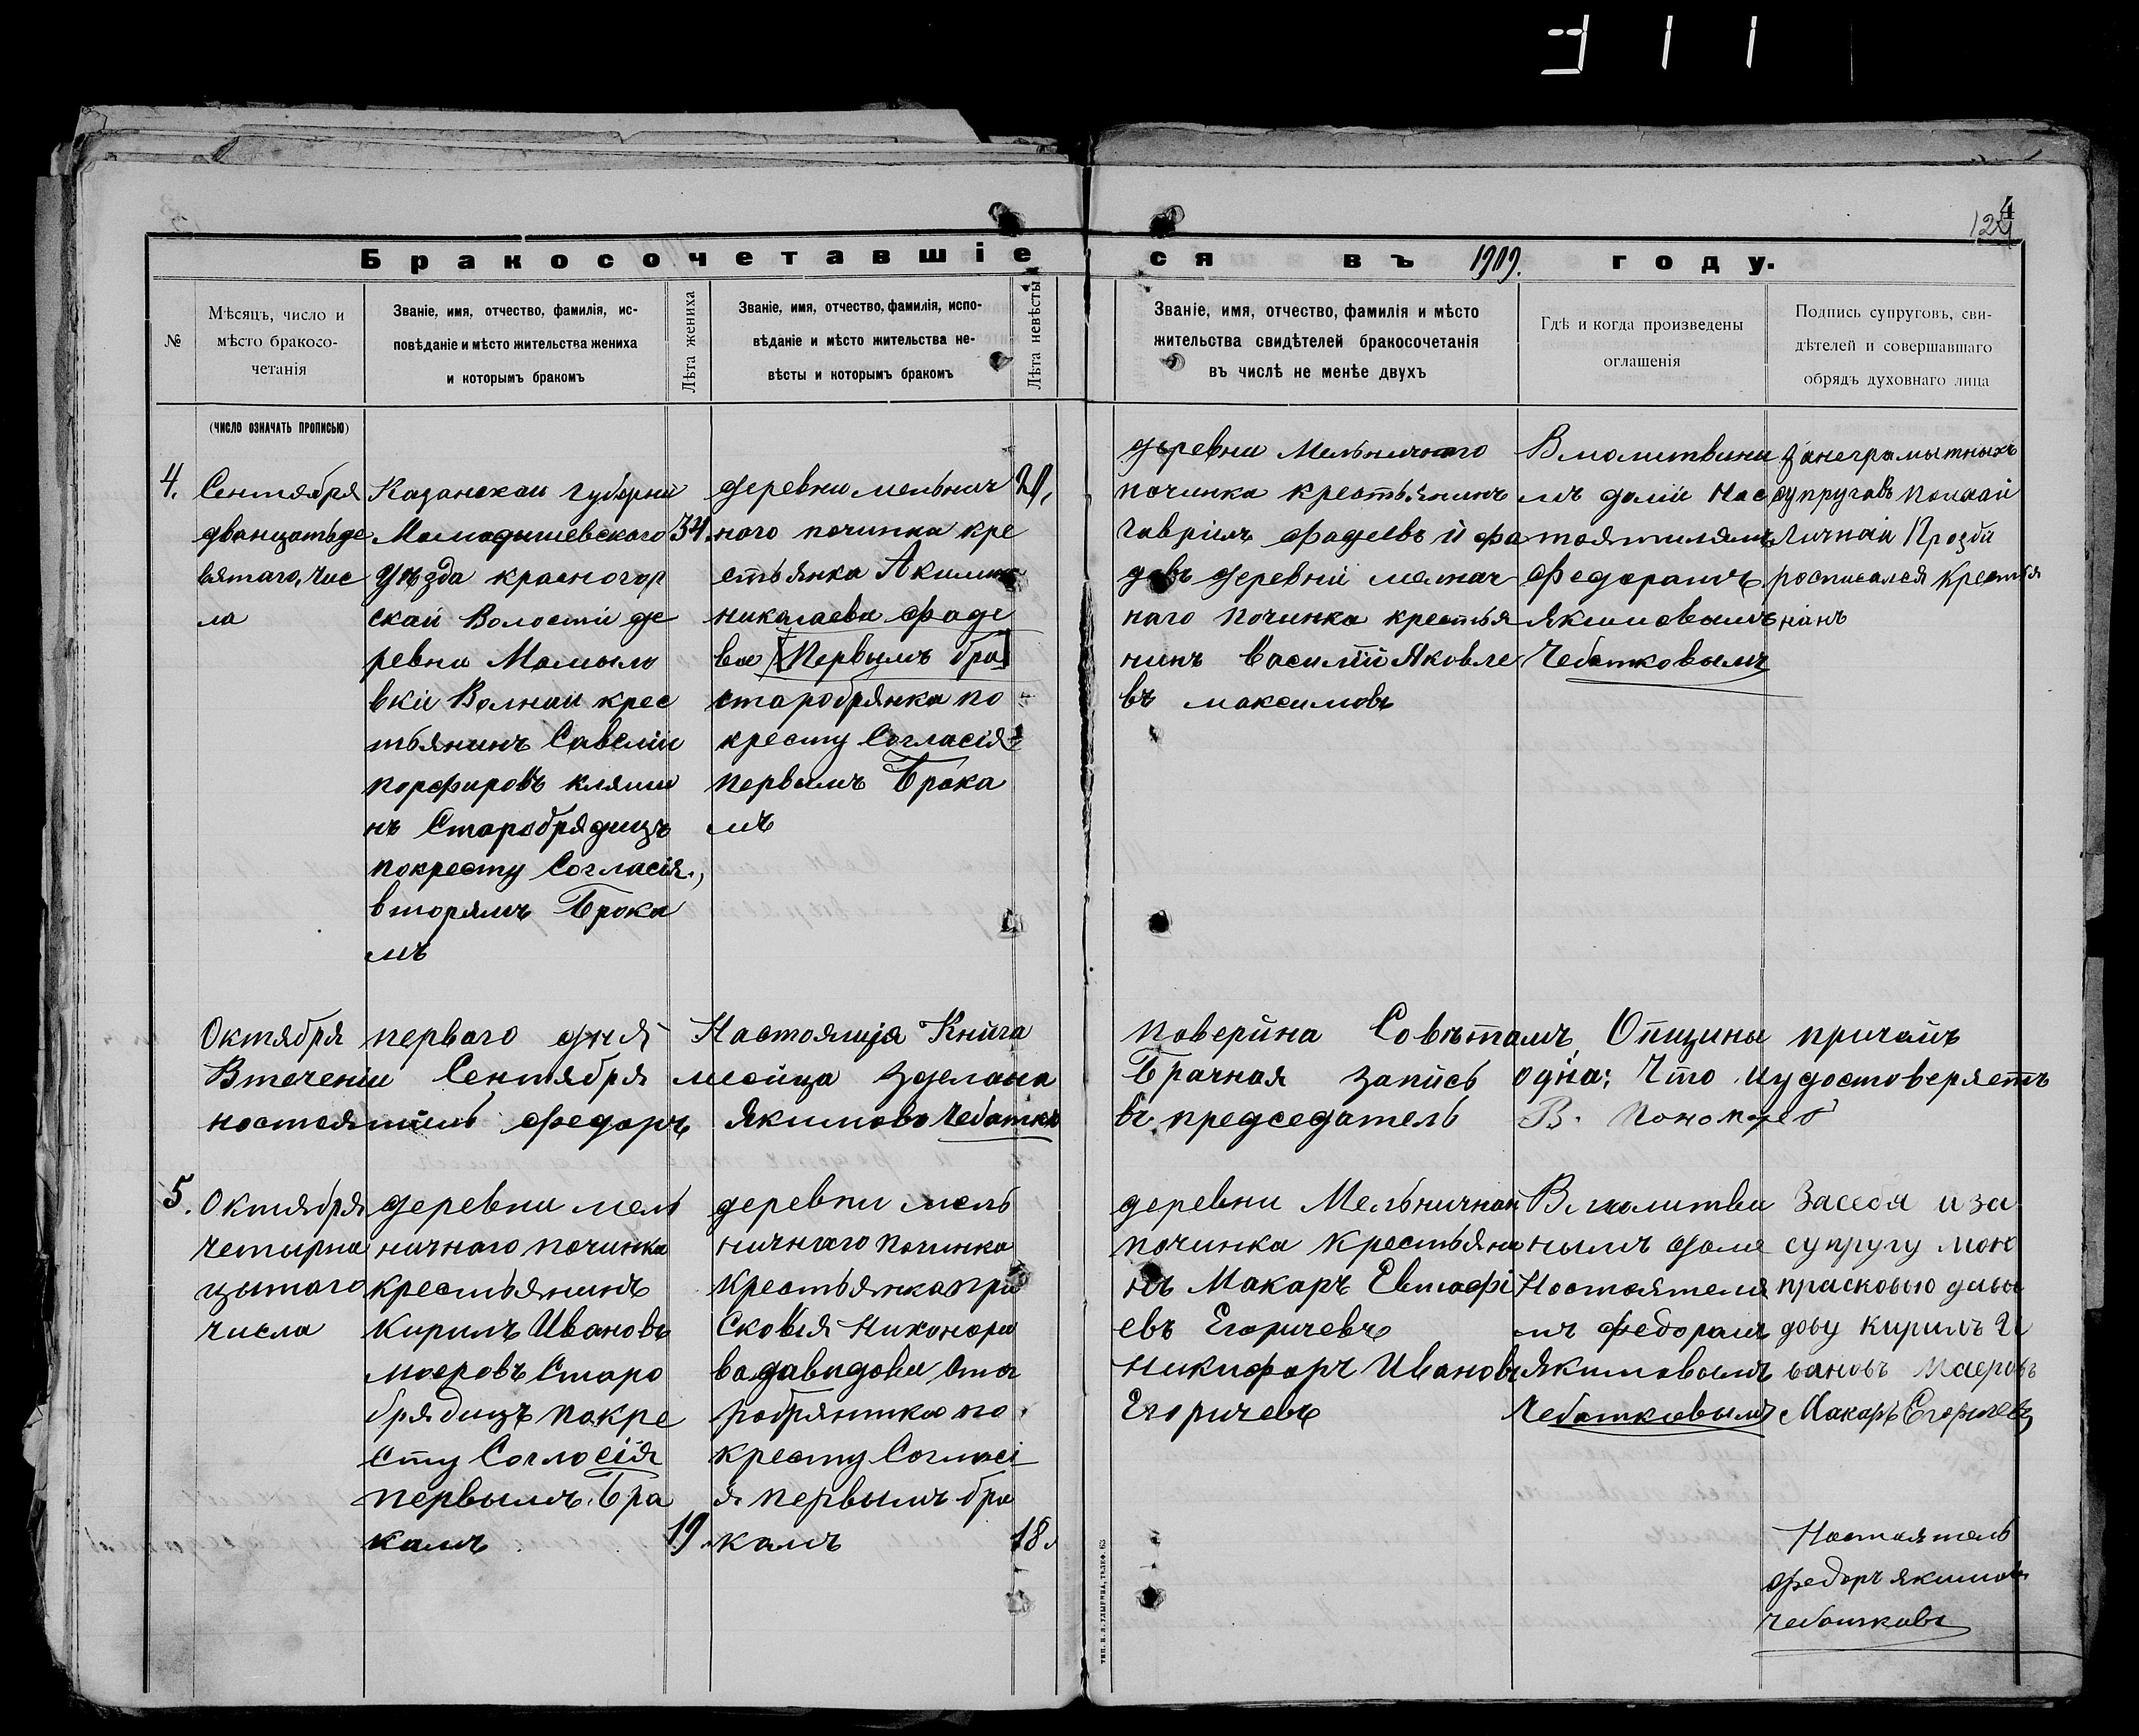 Э 1 1
124
4
Бракосочетавшіеся въ 1909. году.
№
Мѣсяцъ, число и
мѣсто бракосо-
четанія
Званіе, имя, отчество, фамилія, ис-
повѣданіе и мѣсто жительства жениха
и которымъ бракомъ
Лѣта жениха
Званіе, имя, отчество, фамилія, испо-
вѣданіе и мѣсто жительства не-
вѣсты и которымъ бракомъ
Лѣта невѣсты
Званіе, имя, отчество, фамилія и мѣсто
жительства свидѣтелей бракосочетанія
въ числѣ не менѣе двухъ
Гдѣ и когда произведены
оглашенія
Подпись супруговъ, сви-
дѣтелей и совершавшаго
обрядъ духовнаго лица
(число означать прописью)
4.
Сентября
дванцатьде
вятаго, чис
ла
Казанскаи губерни
Мамадышевского
Уѣзда красногор
скай Волости де
ревни Мамыло
вки Волнаи крес
тьянинъ Савелии
порфировъ кляши
нъ Старобрядицъ
покресту Согласія,
вторямъ Брока
мъ
34.
деревни мельнич
ного починка кре
стьянка Акилина
николаева фаде
вое Первымъ бра
старобрянка по
кресту Согласія
первымъ Брака
мъ
20,
деревни Мельничного
починка крестьянинъ
гаврилъ фадеевъ и фа
девъ деревни мелнич
наго починка крестья
нинъ Василий Яковле
въ максимовъ
Вмолитвини
мъ доми Нас
тоятилямъ
Федорамъ
Якимовымъ
Чебатковымъ
занеграмытныхъ
супруговъ поихаи
личнаи Прозби
росписался крестья
нинъ
Октября первого дня Настоящія Книга поверина Совѣтамъ Опщины причамъ
Втечении Сентября месица зделана Брачная запись одна; Что и удостоверяетъ
ностоятиль федоръ Якимово Чебатко въ председатель В. Пономарев
5.
Октября
четырна
цатаго
числа
деревни мель
ничнаго починка
крестьянинъ
Кирилъ Ивановъ
маеровъ Старо
брядицъ покре
сту Согласія
первымъ Бра
камъ
19.
деревни мель
ничнаго починка
крестьянка пра
Сковия Никонора
ва давидова Ста
робрянтка по
кресту Согласі
я первымъ бра
камъ
18.
деревни Мельничнаи
починка крестьяни
нъ Макаръ Евтафі
евъ Егоричевъ
Никифоръ Ивановъ
Егоричевъ
В молитви
нымъ доме
Ностоятеля
мъ Федорамъ
Якимовымъ
Чебатковымъ
Засебя и за
супругу мою
прасковю давы
дову кирилъ И
вановъ Маеровъ
Макаръ Егоричевъ
Настаятель
Федоръ якимовъ
Чебатковъ